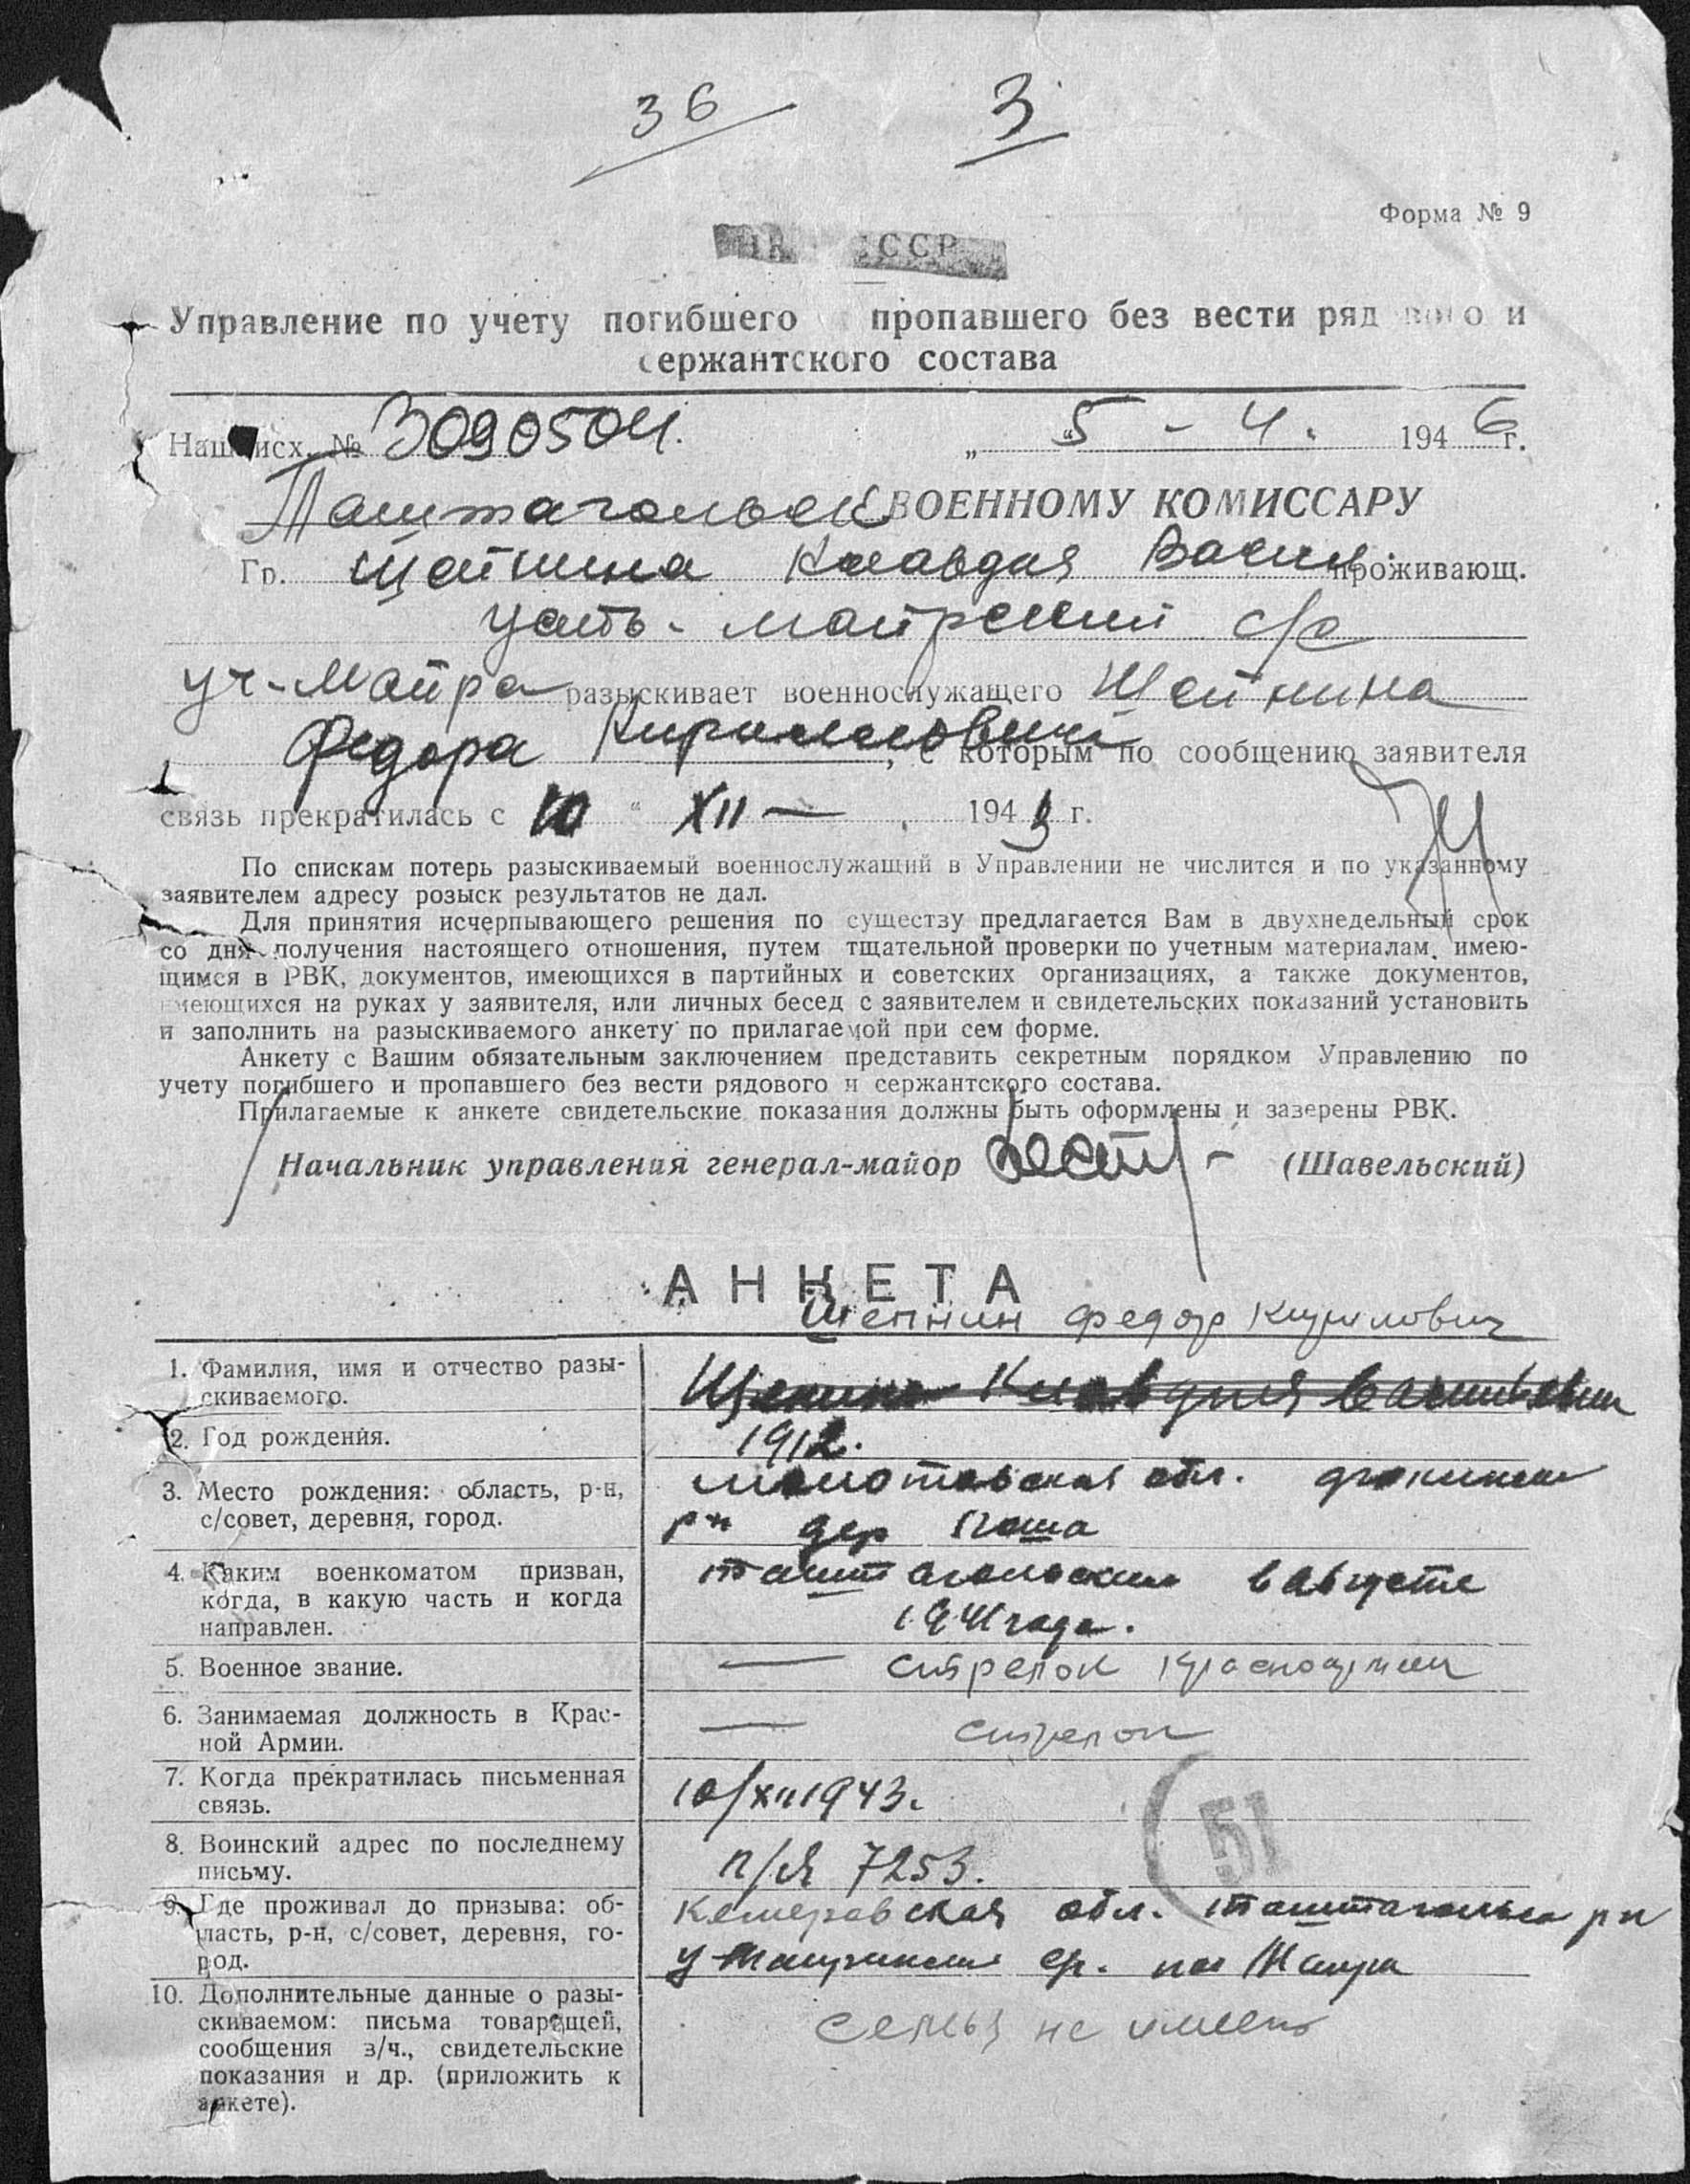 36 3
Форма № 9
СССР
Управление по учету погибшего пропавшего без вести рядового и
сержантского состава
Наш исх. № 3090504. „5 - 4. 1946 г.
Таштагольск ВОЕННОМУ КОМИССАРУ
Гр. Щепнина Клавдия Васил. проживающ.
Усть-майрский с/с
уч-Майра разыскивает военнослужащего Щепнина
Федора Кирилловича, с которым по сообщению заявителя
связь прекратилась с 10 " XII — 1943 г.
По спискам потерь разыскиваемый военнослужащий в Управлении не числится и по указанному
заявителем адресу розыск результатов не дал.
Для принятия исчерпывающего решения по существу предлагается Вам в двухнедельный срок
со дня получения настоящего отношения, путем тщательной проверки по учетным материалам, имею-
щимся в РВК, документов, имеющихся в партийных и советских организациях, а также документов,
имеющихся на руках у заявителя, или личных бесед с заявителем и свидетельских показаний установить
и заполнить на разыскиваемого анкету по прилагаемой при сем форме.
Анкету с Вашим обязательным заключением представить секретным порядком Управлению по
учету погибшего и пропавшего без вести рядового и сержантского состава.
Прилагаемые к анкете свидетельские показания должны быть оформлены и заверены РВК.
Начальник управления генерал-майор (Шавельский)
АНКЕТА
Щепнин Федор Кирилович
1. Фамилия, имя и отчество разы-
скиваемого.
Щепнина Клавдия Васильевна
2. Год рождения.
1912.
3. Место рождения: область, р-н,
с/совет, деревня, город.
Молотовская обл.
р-н дер
4. Каким военкоматом призван,
когда, в какую часть и когда
направлен.
таштагольским в августе
1941 года.
5. Военное звание.
— стрелок красноармеец
6. Занимаемая должность в Крас-
ной Армии.
— стрелок
7. Когда прекратилась письменная
связь.
10/XII 1943.
8. Воинский адрес по последнему
письму.
п/я 7253.
51
9. Где проживал до призыва: об-
ласть, р-н, с/совет, деревня, го-
род.
Кемеровская обл. таштагольск рн
10. Дополнительные данные о разы-
скиваемом: письма товарищей,
сообщения з/ч., свидетельские
показания и др. (приложить к
анкете).
семья не имеет